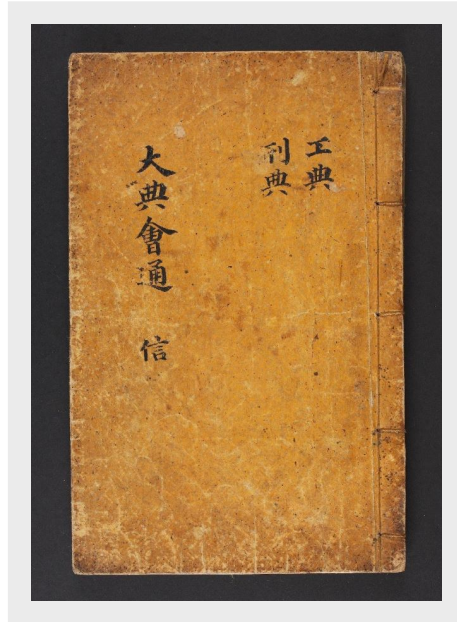 工典
刑典
大典會通 信